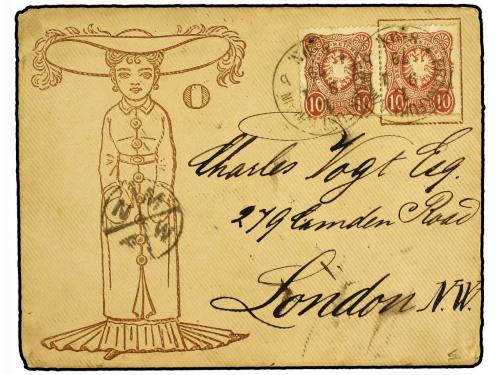 10 10
O
Charles Vogt Esq.
279 Camden Road
London N.W.